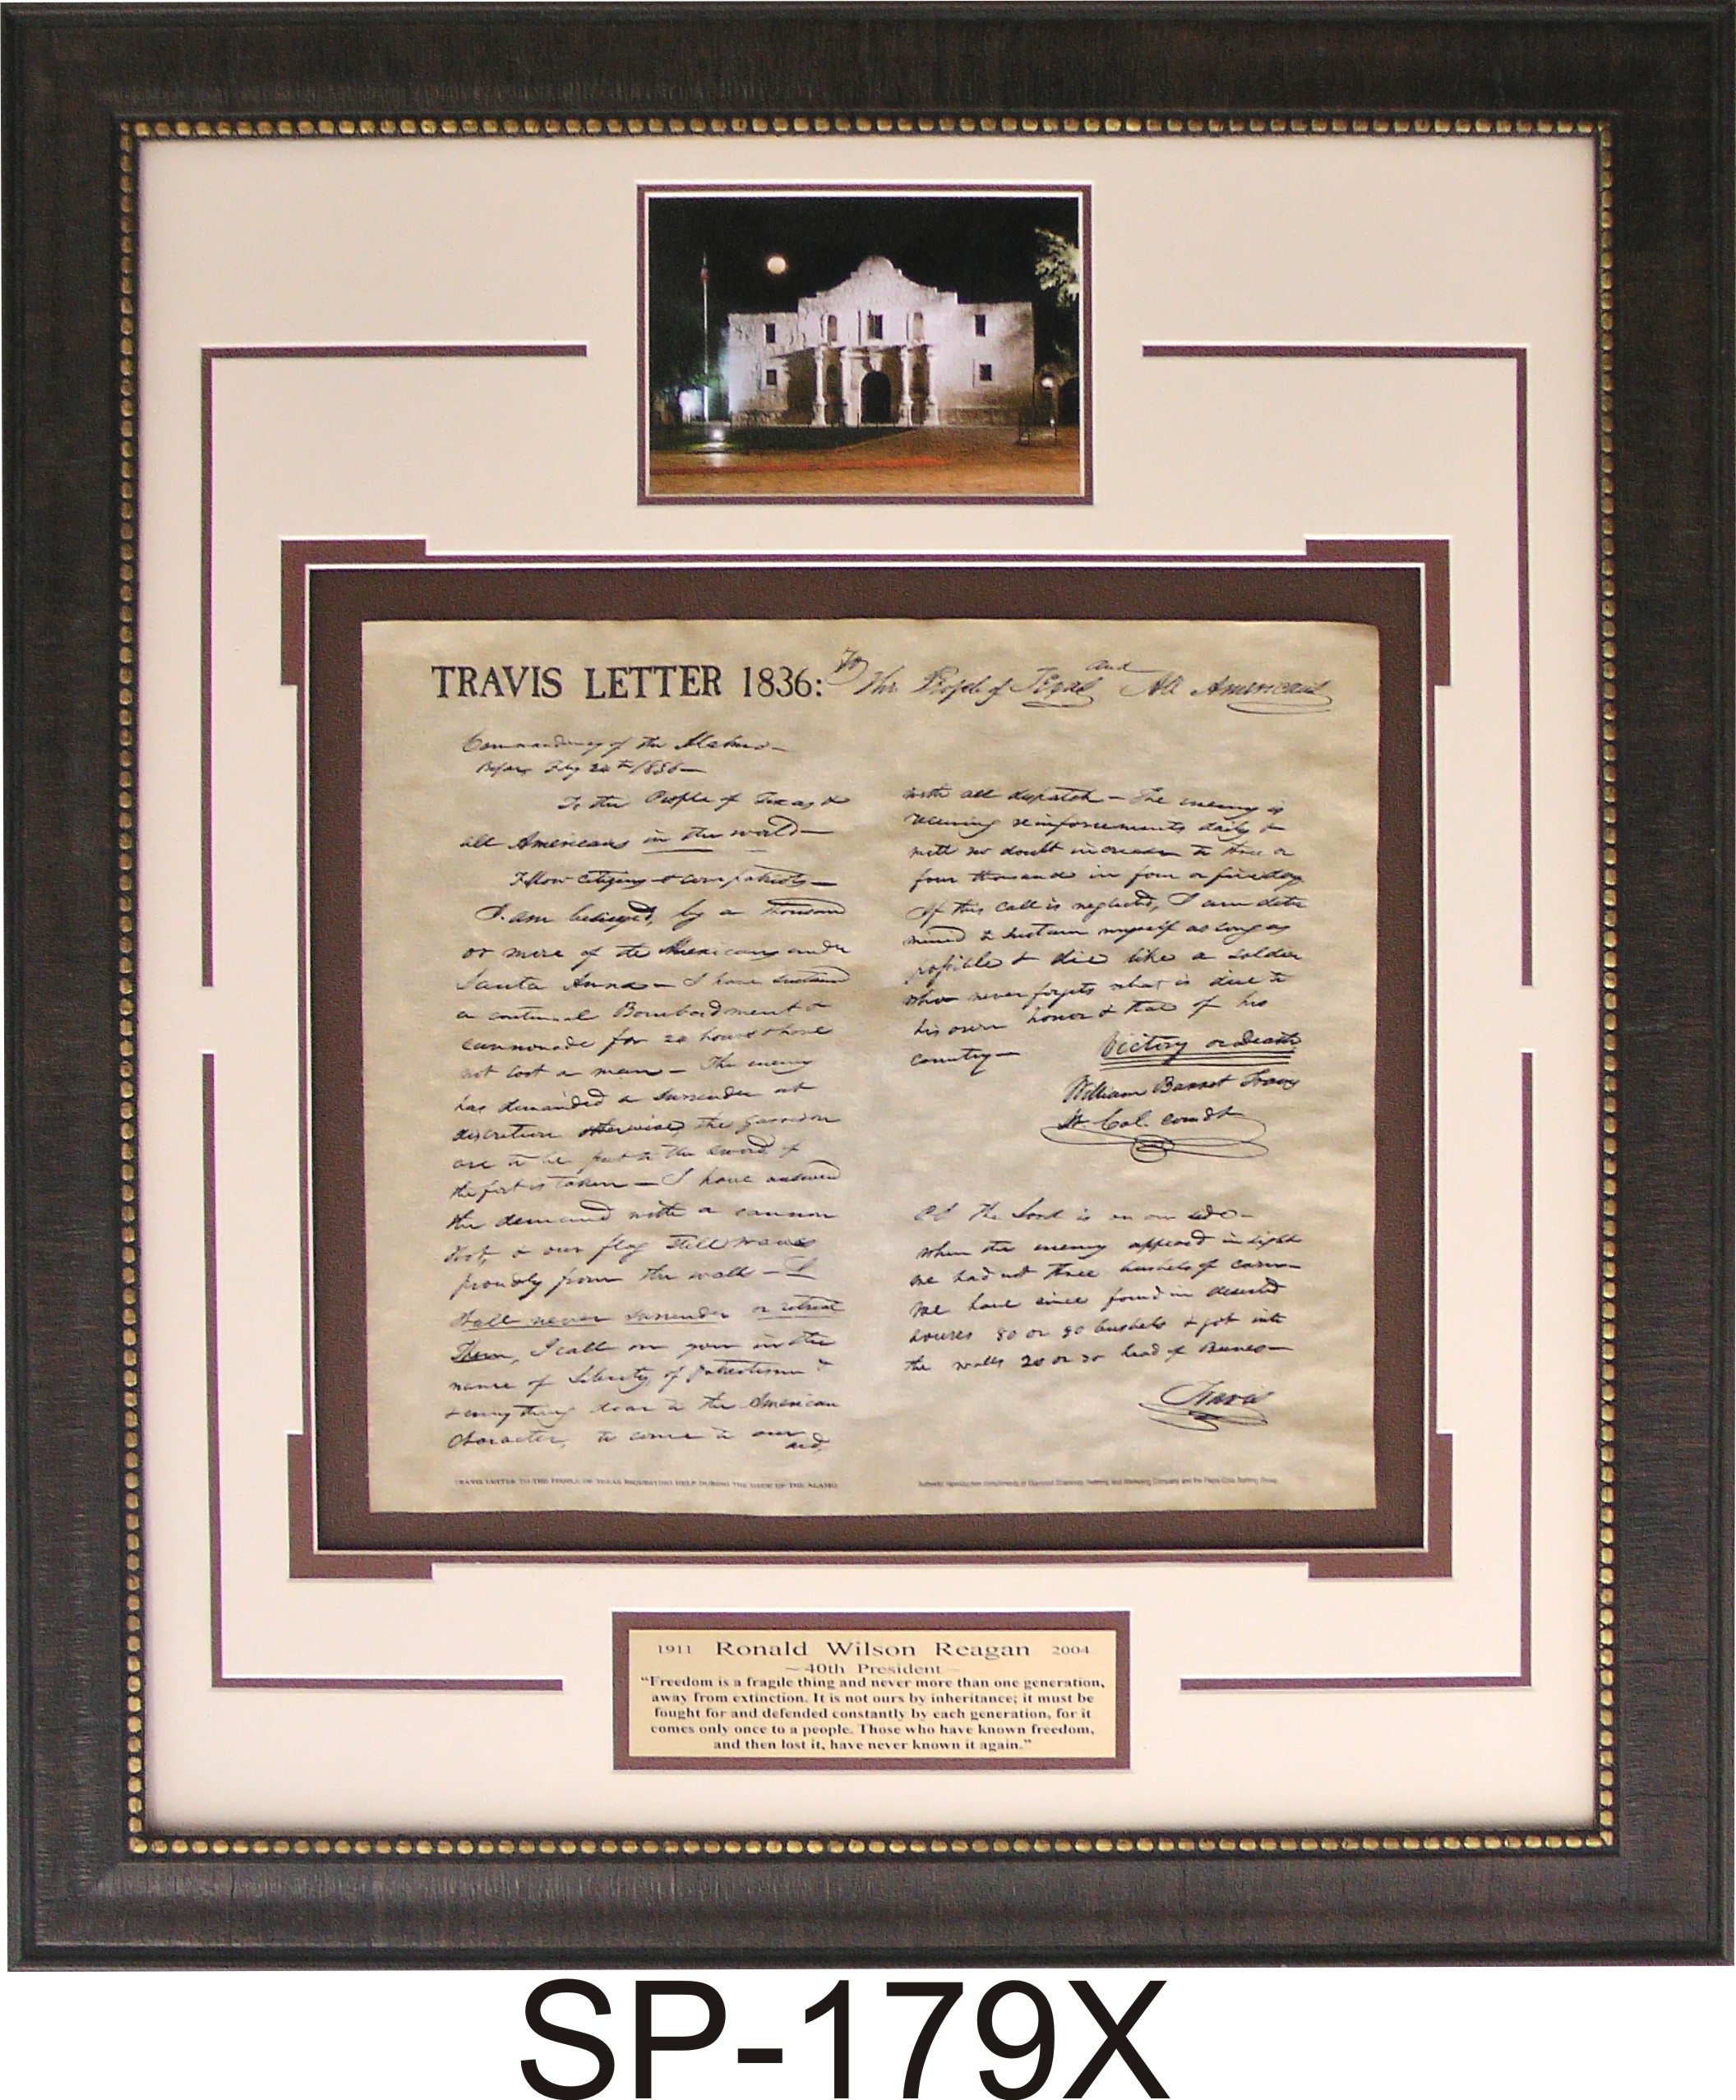 TRAVIS LETTER 1836: To The People of Texas and All Americans
Commandancy of the Alamo—
Bejar, Feby 24th 1836—
To the People of Texas &
all Americans in the world—
Fellow citizens & compatriots—
I am besieged, by a thousand
or more of the Mexicans under
Santa Anna— I have sustained
a continual Bombardment &
cannonade for 24 hours & have
not lost a man— The enemy
has demanded a surrender at
discretion otherwise, the garrison
are to be put to the sword, if
the fort is taken— I have answered
the demand with a cannon
shot, & our flag still waves
proudly from the walls— I
shall never surrender or retreat
Then, I call on you in the
name of Liberty, of patriotism &
& every thing dear to the American
character, to come to our
aid,
with all dispatch— The enemy is
receiving reinforcements daily &
will no doubt increase to three or
four thousand in four or five days
If this call is neglected, I am deter
mined to sustain myself as long as
possible & die like a soldier
who never forgets what is due to
his own honor & that of his
country—
Victory or Death
William Barret Travis
Lt. Col. comdt
P.S. The Lord is on our side—
When the enemy appeared in sight
we had not three bushels of corn—
We have since found in deserted
houses 80 or 90 bushels & got into
the walls 20 or 30 head of Beeves—
Travis
TRAVIS LETTER TO THE PEOPLE OF TEXAS REQUESTING HELP DURING THE SIEGE OF THE ALAMO
1911 Ronald Wilson Reagan 2004
~40th President~
“Freedom is a fragile thing and never more than one generation,
away from extinction. It is not ours by inheritance; it must be
fought for and defended constantly by each generation, for it
comes only once to a people. Those who have known freedom,
and then lost it, have never known it again.”
SP-179X